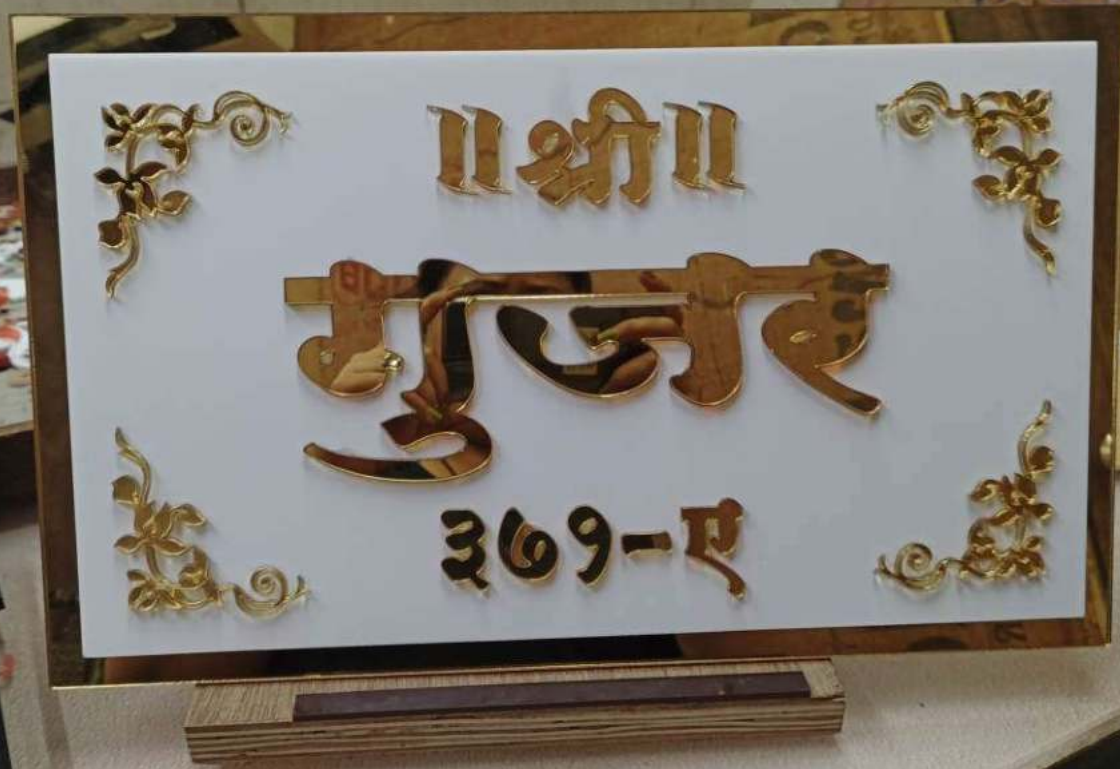 ॥श्री॥
गुजर
३७१-ए